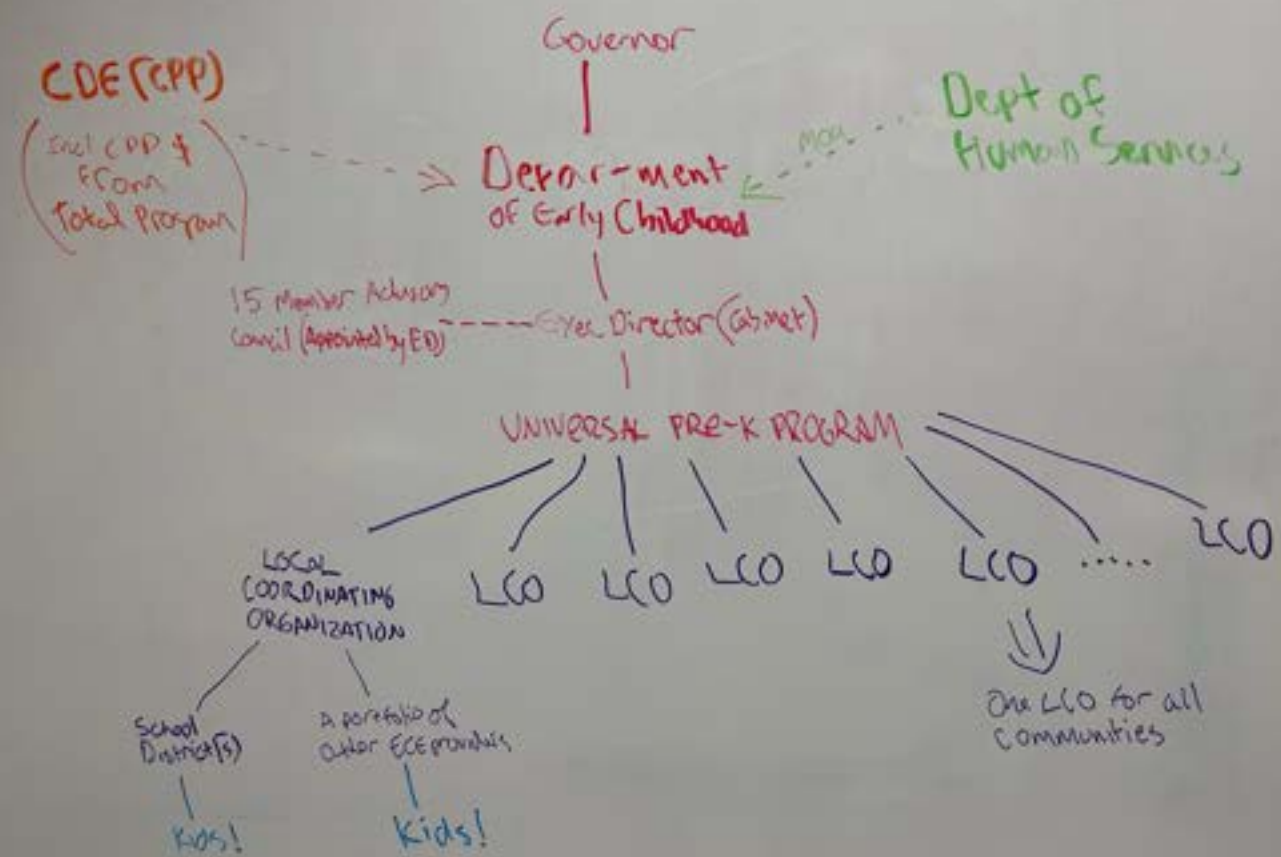 Governor
CDE (CPP)
(Incl CPP $
From
Total Program)
Dept of
Human Services
MOU
Depar-ment
of Early Childhood
15 Member Advisory
Council (Appointed by ED)
Exec Director (Cabinet)
UNIVERSAL PRE-K PROGRAM
LOCAL
COORDINATING
ORGANIZATION
LCO
LCO
LCO
LCO
LCO
.....
LCO
School
District(s)
A portfolio of
other ECE providers
One LCO for all
communities
Kids!
Kids!